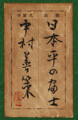 日本平の富士
中村善策